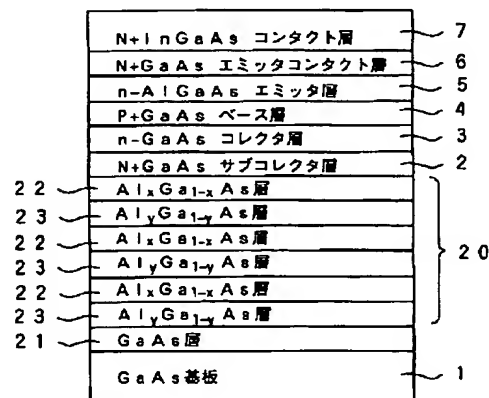 N+InGaAs コンタクト層 7
N+GaAs エミッタコンタクト層 6
n-AlGaAs エミッタ層 5
P+GaAs ベース層 4
n-GaAs コレクタ層 3
N+GaAs サブコレクタ層 2
22 AlxGa1-xAs層
23 AlyGa1-yAs層
22 AlxGa1-xAs層
23 AlyGa1-yAs層 20
22 AlxGa1-xAs層
23 AlyGa1-yAs層
21 GaAs層
GaAs基板 1